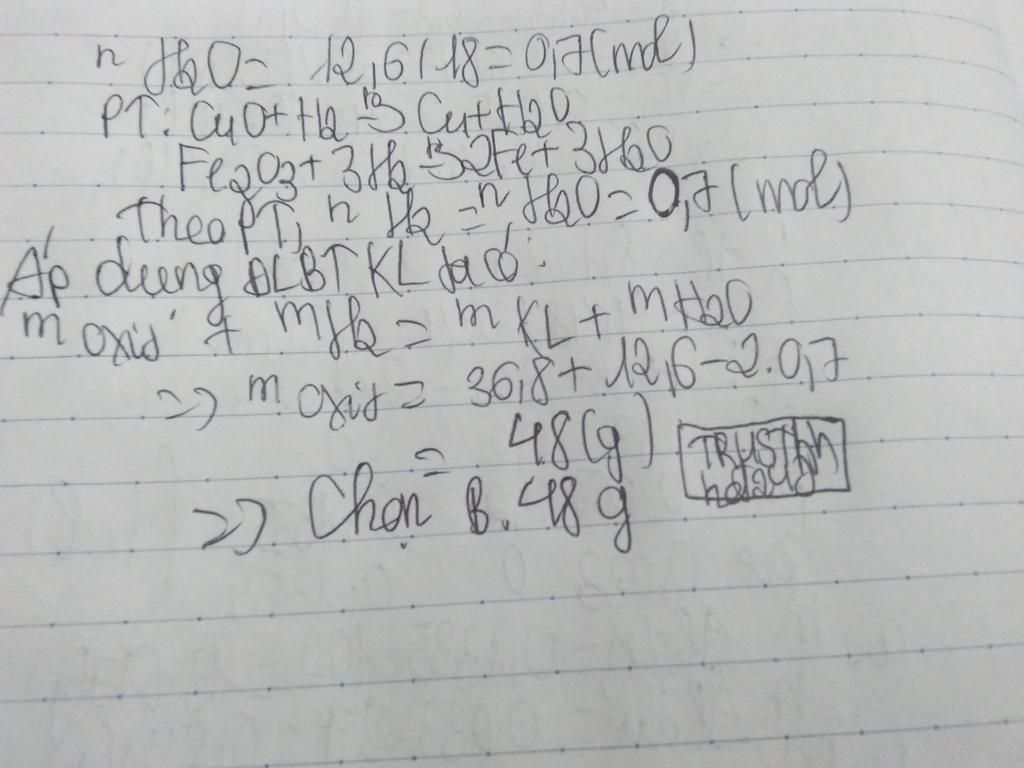 n H2O = 12,6/18 = 0,7(mol)
PT: CuO + H2 → Cu + H2O
Fe2O3 + 3H2 → 2Fe + 3H2O
Theo PT, n H2 = n H2O = 0,7 (mol)
Áp dụng ĐLBTKL ta có:
m oxit + mH2 = m KL + mH2O
=> m oxit = 36,8 + 12,6 - 2.0,7
= 48(g)
TRUST
=> Chọn B. 48g